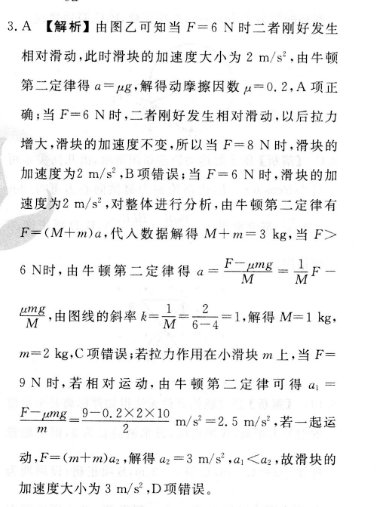 3. A 【解析】由图乙可知当 F=6 N 时二者刚好发生
相对滑动,此时滑块的加速度大小为 2 m/s²,由牛顿
第二定律得 a=μg,解得动摩擦因数 μ=0.2,A 项正
确;当 F=6 N 时,二者刚好发生相对滑动,以后拉力
增大,滑块的加速度不变,所以当 F=8 N 时,滑块的
加速度为2 m/s²,B项错误;当 F=6 N 时,滑块的加
速度为2 m/s²,对整体进行分析,由牛顿第二定律有
F=(M+m)a,代入数据解得 M+m=3 kg,当 F>
6 N时,由牛顿第二定律得 a=\frac{F-μmg}{M}=\frac{1}{M}F-
\frac{μmg}{M},由图线的斜率 k=\frac{1}{M}=\frac{2}{6-4}=1,解得 M=1 kg,
m=2 kg,C项错误;若拉力作用在小滑块 m 上,当 F=
9 N 时,若相对运动,由牛顿第二定律可得 a₁=
\frac{F-μmg}{m}=\frac{9-0.2×2×10}{2} m/s²=2.5 m/s²,若一起运
动,F=(m+m)a₂,解得 a₂=3 m/s²,a₁<a₂,故滑块的
加速度大小为 3 m/s²,D项错误。